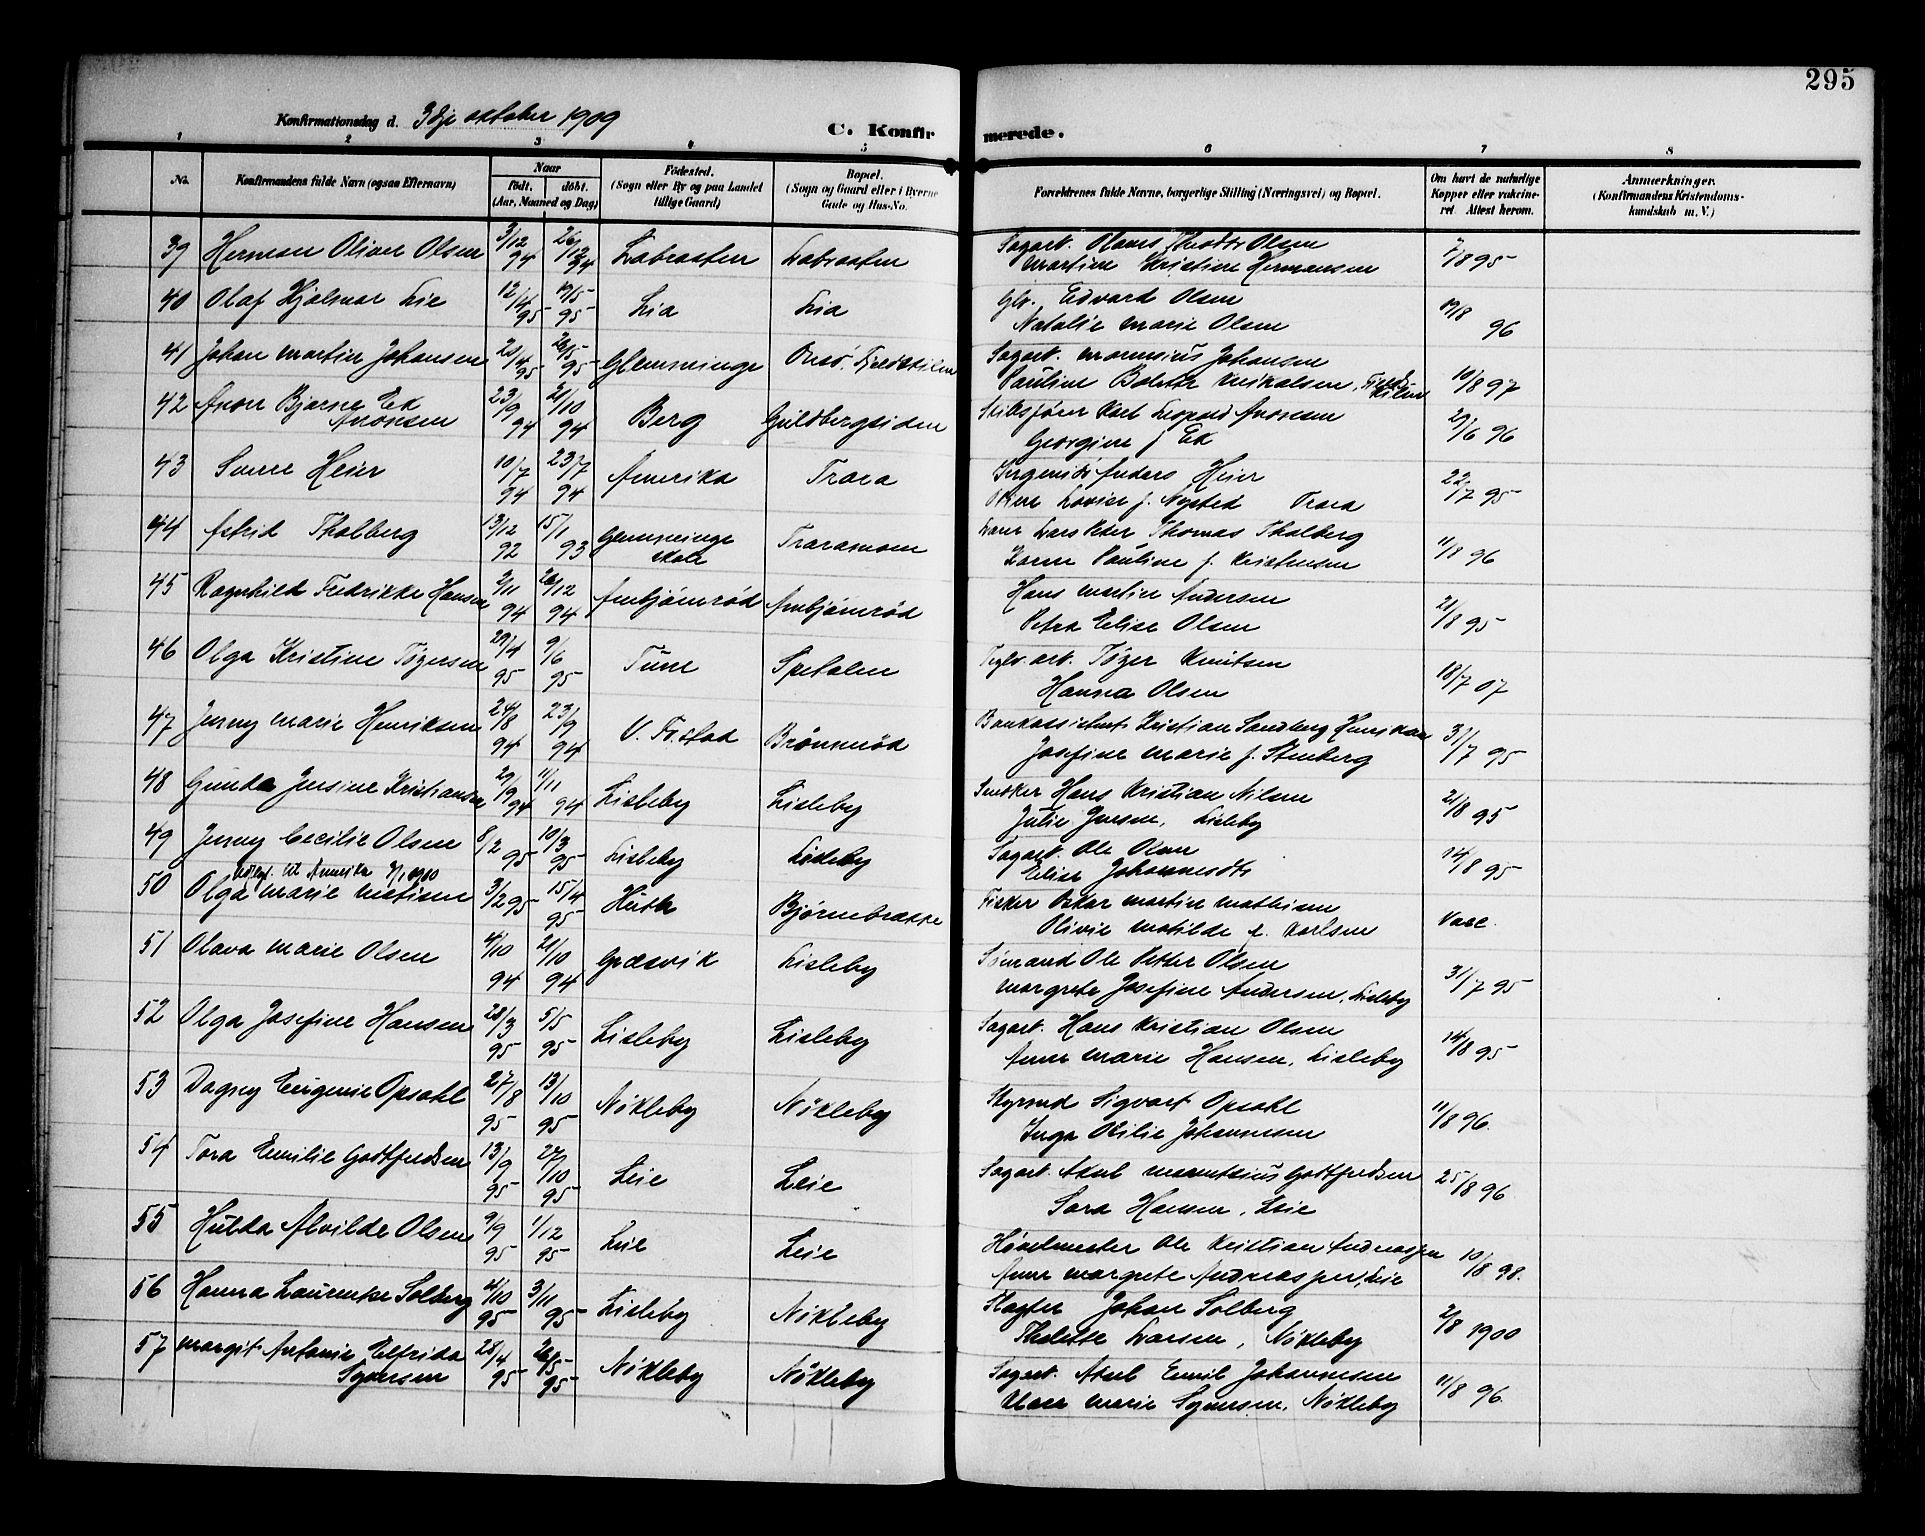 295
Konfirmationsdag d. 3dje oktober 1909
C. Konfirmerede.
1 2 3 4 5 6 7 8
No.
Konfirmandens fulde Navn (ogsaa Efternavn)
Naar
födt. döbt.
(Aar, Maaned og Dag)
Födested.
(Sogn eller By og paa Landet
tillige Gaard)
Bopæl.
(Sogn og Gaard eller i Byerne
Gade og Hus-No.
Forældrenes fulde Navne, borgerlige Stilling (Næringsvei) og Bopæl.
Om havt de naturlige
Kopper eller vaccine-
ret. Attest herom.
Anmærkninger.
(Konfirmandens Kristendoms-
kundskab m. V.)
39 Herman Oliver Olsen 3/12 94 26/12 94 Labraaten Labraaten Sagarb. Hans Theodor Olsen 7/8 95
Martine Kristine Hermansen
40 Olaf Hjalmar Lie 12/4 95 19/5 95 Lia Lia Edvard Olsen 19/8 96
Natalie Marie Olsen
41 Johan Martin Johansen 95 26/5 95 Glemminge Onsö. Sagarb. Johansen 10/8 97
Pauline Mikalsen
42 Bjarne Ek 23/9 94 21/10 94 Berg Guldbergsiden Karl Leopold Aronsen 29/6 96
Aronsen Georgine f Ek
43 Sverre Heier 10/7 94 23/7 94 Amerika Trara Anders Heier 22/7 95
Lovise f. Nysted Trara
44 Astrid Tholberg 13/12 92 15/1 93 Glemminge Traramoen Lars Peter Thomas Tholberg 11/8 96
skole Karen Pauline f. Kristensen
45 Ragnhild Fredrikke Hansen 2/11 94 26/12 94 Ambjörnröd Ambjörnröd Hans Martin Andersen 21/8 95
Petra Elise Olsen
46 Olga Kristine Tögersen 29/4 95 9/6 95 Tune Spetalen Teglv. arb. Töger Knutsen 18/7 07
Hanna Olsen
47 Jenny Marie Henriksen 24/8 94 23/9 94 V. Fr.stad Brönneröd Bankassistent Kristian Sandberg Henriksen 31/7 95
Josefine Marie f. Stenberg
48 Gunda Jensine Kristiansen 29/9 94 11/11 94 Lisleby Lisleby Snekker Hans Kristian Nilsen 21/8 95
Julie Jensen, Lisleby
49 Jenny Cecilie Olsen 8/2 95 10/3 95 Lisleby Lisleby Sagarb. Ole Olsen 14/8 95
Elise Johannesdt.
til Amerika 1910
50 Olga Marie 3/2 95 15/4 95 Bjørnebrække Fisker Oskar Martin Mathisen Vacc.
Olivie Matilde f. Karlsen
51 Olava Marie Olsen 4/10 94 21/10 94 Græsvik Lisleby Sömand Ole Petter Olsen 31/7 95
Margrete Josefine Andersen, Lisleby
52 Olga Josefine Hansen 28/3 95 5/5 95 Lisleby Lisleby Sagarb. Hans Kristian Olsen 14/8 95
Anne Marie Hansen, Lisleby
53 Dagny Eugenie Opsahl 27/8 95 13/10 95 Nökleby Nökleby Styrmd Sigvart Opsahl 11/8 96.
Inga Otilie Johannesen
54 Tora Emilie Godtfredsen 13/9 95 27/10 95 Leie Leie Sagarb. Axel Godtfredsen 25/8 96
Sara Hansen, Leie
55 Hulda Alvilde Olsen 9/9 95 1/12 95 Leie Leie Hövelmester Ole Kristian Andreassen 10/8 98.
Anne Margrete Leie
56 Hanna Laurentse Solberg 4/10 95 3/11 95 Lisleby Nökleby Slagter Johan Solberg 2/8 1900
Larsen, Nökleby
57 Margit Antonie Elfrida 25/4 95 26/5 95 Nökleby Nökleby Sagarb. Axel Emil Johannesen 11/8 96.
Syversen Marie Syversen, Nökleby